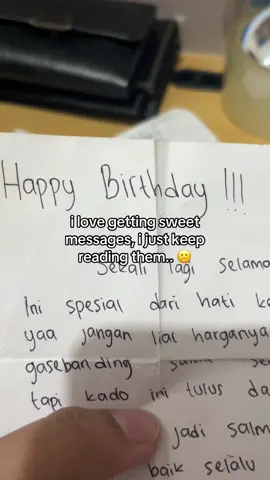 Happy Birthday !!!
i love getting sweet
messages, i just keep
reading them.. 🫠
Sekali lagi selama
Ini spesial dari hati ka
yaa jangan liat harganya
gasebanding
tapi kado ini tulus da
jadi salm
baik selalu